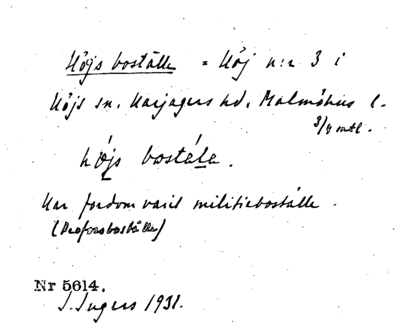 Höjs boställe = Höj n:r 3 i
Höjs sn. Harjagers hd. Malmöhus l.
3/4 mtl.
höjs bostäle.
Har fordom varit militieboställe.
(Profossboställe)
Nr 5614.
I. Ingers 1931.